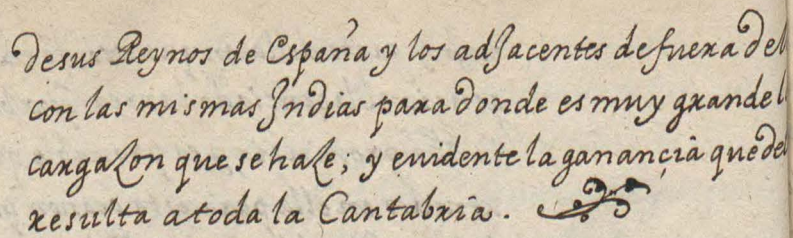 desus Reynos de España y los adJacentes defuera del
con las mismas Jndias para donde es muy grande l
cargaZon que se haZe; y euidente la ganançia que del
resulta a toda la Cantabria.